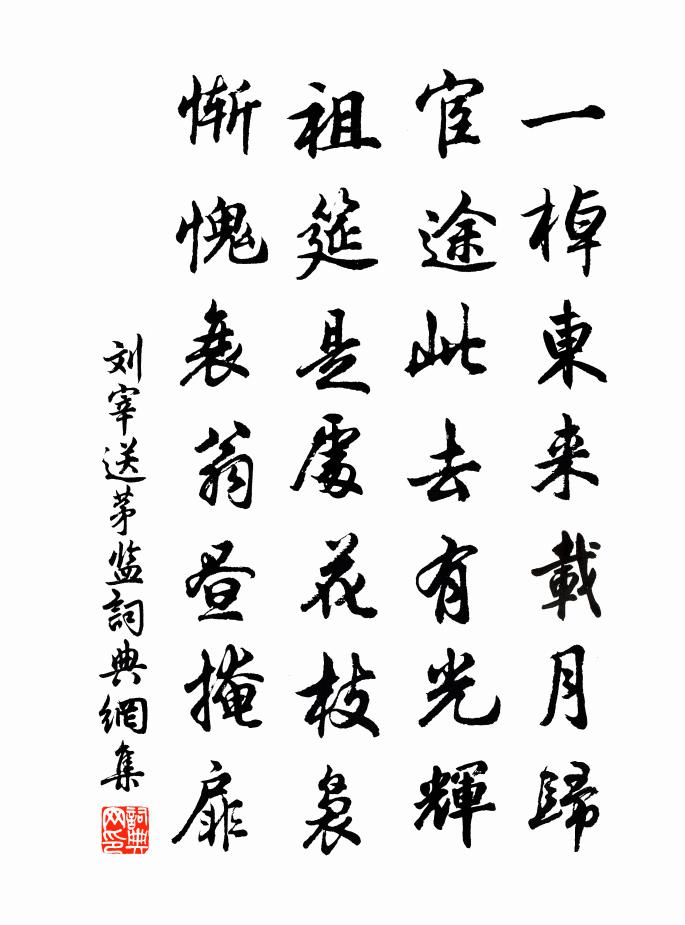 一棹東来載月歸
宦途此去有光輝
祖筵是處花枝裊
慚愧衰翁昼掩扉
刘宰送茅监詞典網集
詞典网印